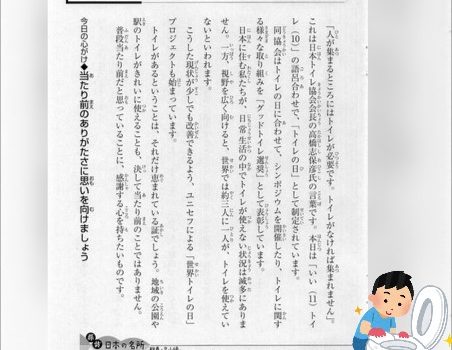 「人が集まるところにはトイレが必要です。トイレがなければ集まれません」。
これは日本トイレ協会会長の高橋志保彦氏の言葉です。本日は「いい（11）ト
イレ（10）」の語呂合わせで、「トイレの日」として制定されています。
同協会はトイレの日に合わせて、シンポジウムを開催したり、トイレに関す
る様々な取り組みを「グッドトイレ選奨」として表彰しています。
日本に住む私たちが、日常生活の中でトイレが使えない状況は滅多にありま
せん。一方、視野を広く向けると、世界では約三人に一人が、トイレを使えてい
ないといわれます。
こうした現状が少しでも改善できるよう、ユニセフによる「世界トイレの日」
プロジェクトも始まっています。
トイレがあるということは、それだけ恵まれている証でしょう。地域の公園や
駅のトイレがきれいに使えることも、決して当たり前のことではありません。
普段当たり前だと思っていることに、感謝する心を持ちたいものです。
今日の心がけ◆当たり前のありがたさに思いを向けましょう
日本の名所